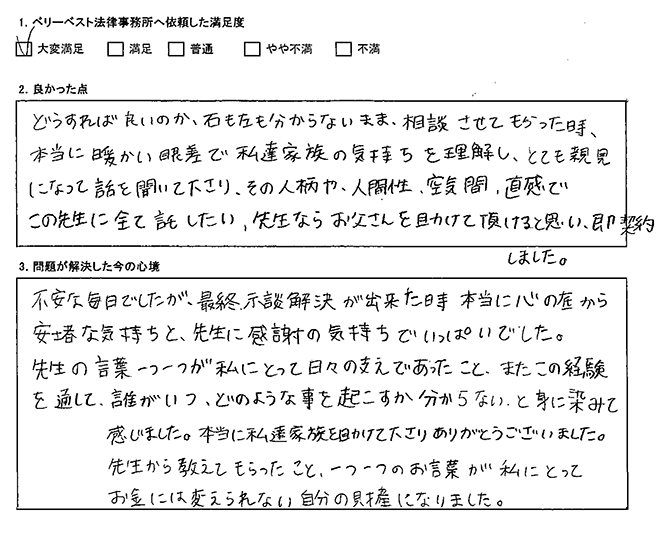 1. ベリーベスト法律事務所へ依頼した満足度
大変満足 満足 普通 やや不満 不満
2. 良かった点
どうすれば良いのか、右も左も分からないまま、相談させてもらった時、
本当に暖かい眼差で私達家族の気持ちを理解し、とても親身
になって話を聞いて下さり、その人柄や、人間性、空気間、直感で
この先生に全て託したい、先生ならお父さんを助けて頂けると思い、即契約
しました。
3. 問題が解決した今の心境
不安な毎日でしたが、最終示談解決が出来た時本当に心の底から
安堵な気持ちと、先生に感謝の気持ちでいっぱいでした。
先生の言葉一つ一つが私にとって日々の支えであったこと、またこの経験
を通して、誰がいつ、どのような事を起こすか分からない、と身に染みて
感じました。本当に私達家族を助けて下さりありがとうございました。
先生から教えてもらったこと、一つ一つのお言葉が私にとって
お金には変えられない自分の財産になりました。